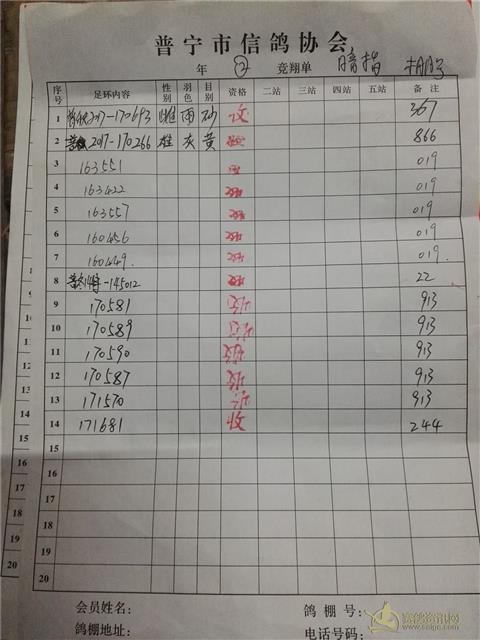 普宁市信鸽协会
年 ② 竞翔单 暗指
序号 足环内容 性别 羽色 目别 资格 二站 三站 四站 五站 备注
1 2017-170693 雌 雨 砂 收 367
2 2017-170266 雄 灰 黄 866
3 163551 019
4 163422 019
5 163557 019
6 160456 019
7 160449. 019
8 -145012 22
9 170581 收 913
10 170589 收 913
11 170590 收 913
12 170587 收 913
13 171570 收 913
14 171681 收 244
15
16
17
18
19
20
会员姓名: 鸽棚号:
鸽棚地址: 电话号码:
赛鸽资讯网